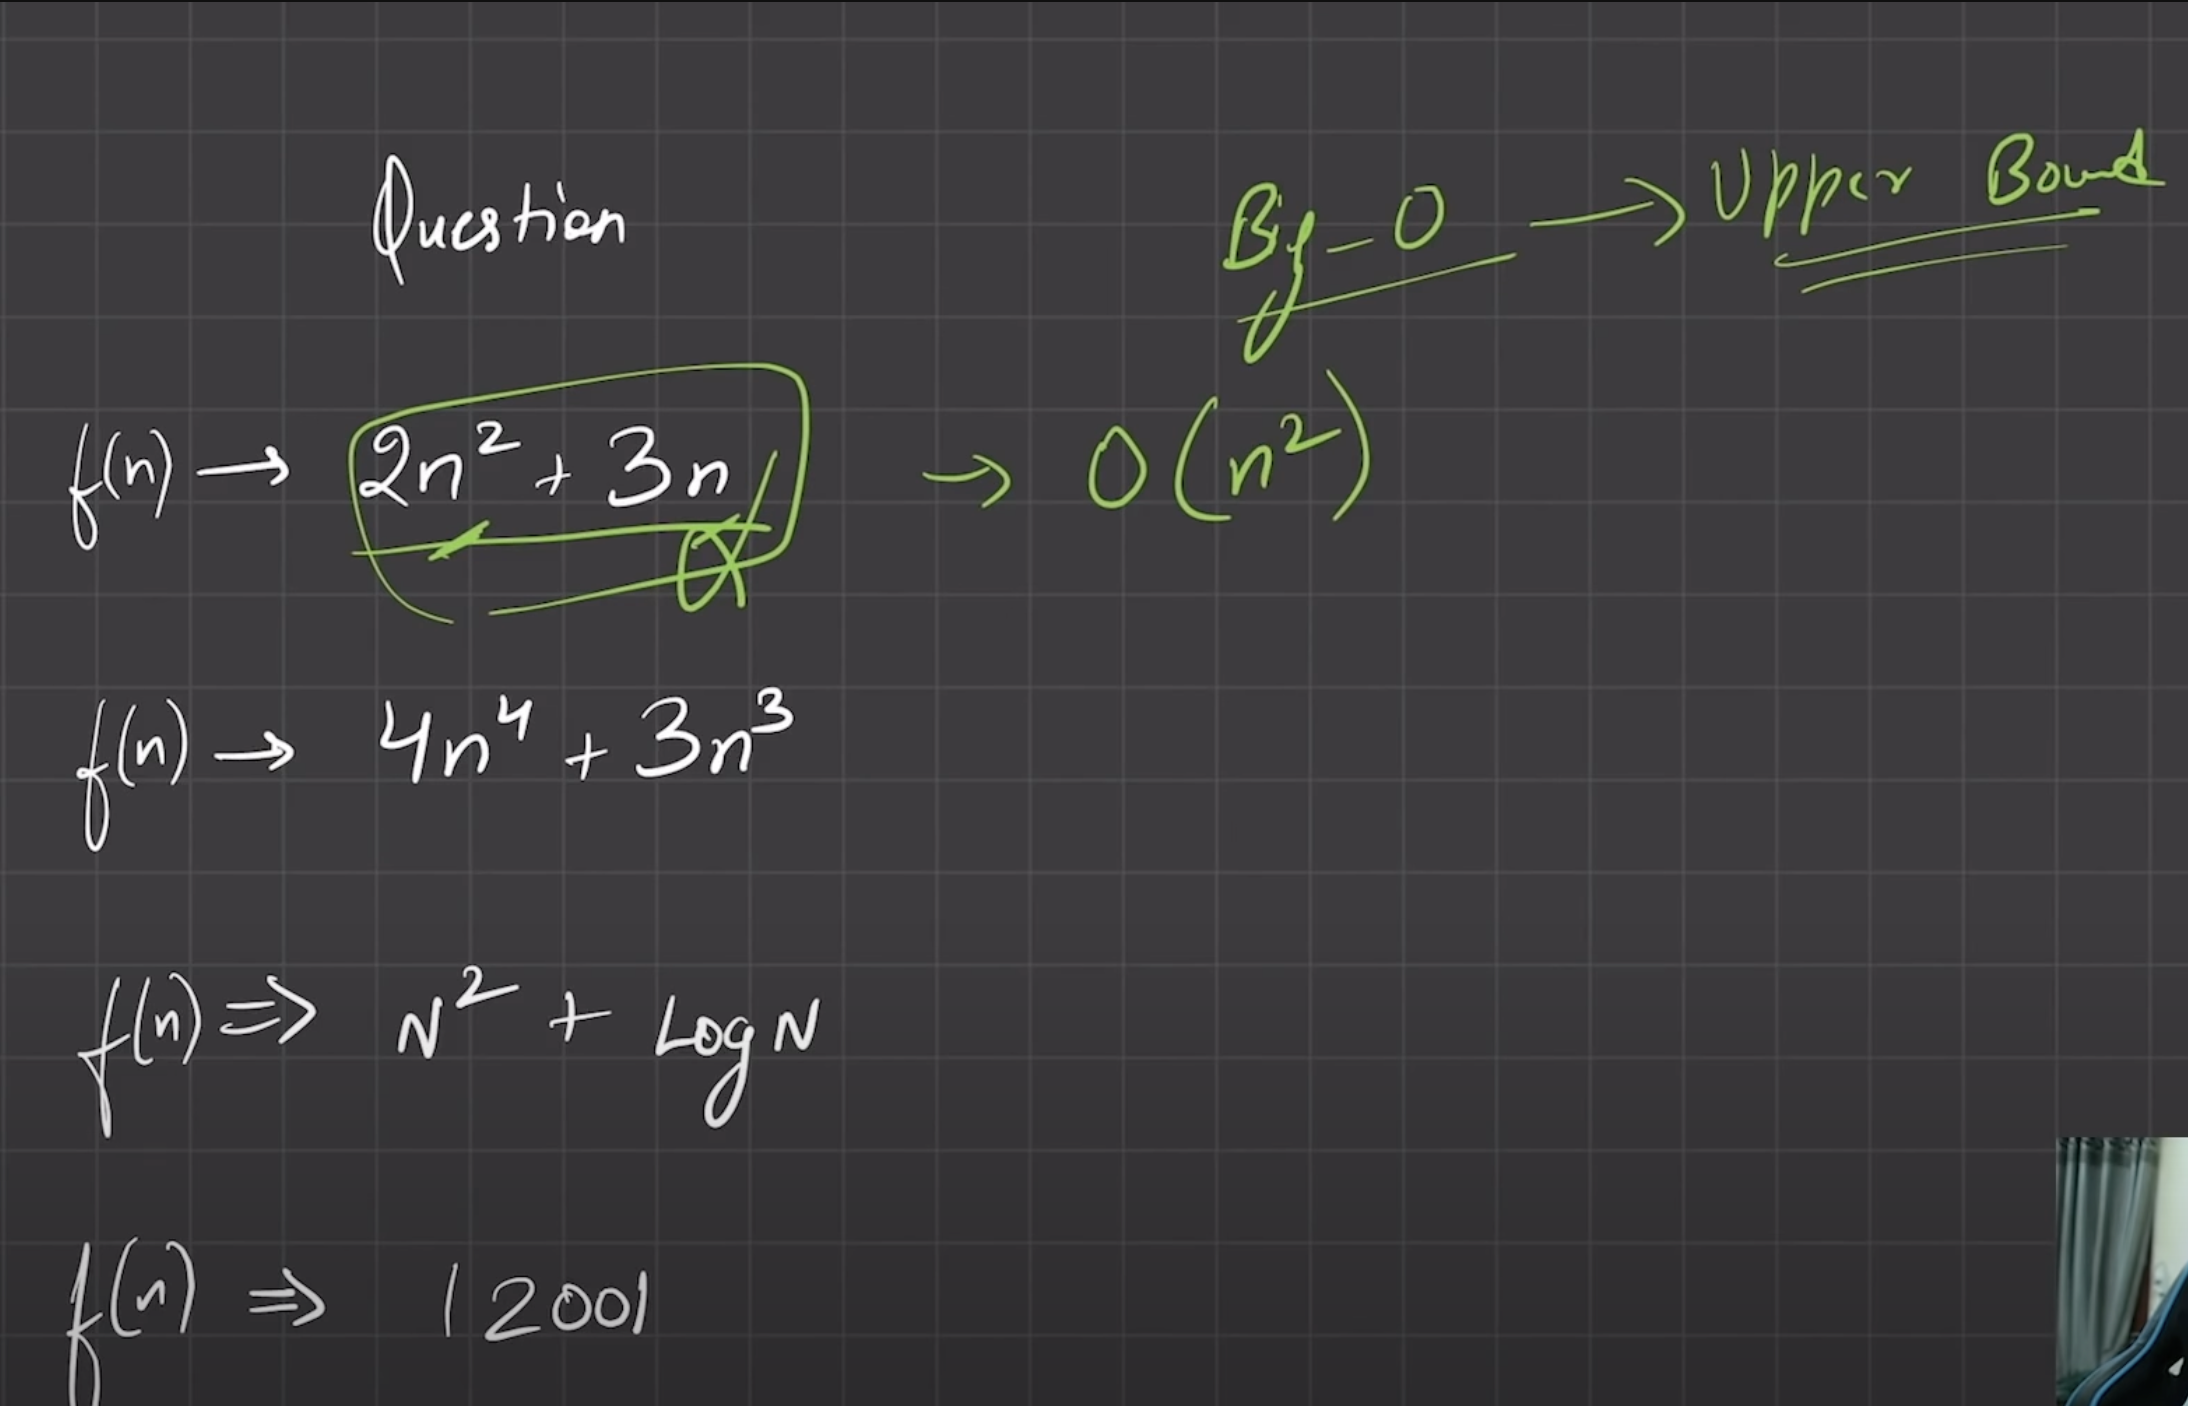 Question
Big-O → Upper Bound
f(n) → 2n² + 3n → O(n²)
f(n) → 4n⁴ + 3n³
f(n) => N² + Log N
f(n) => 12001